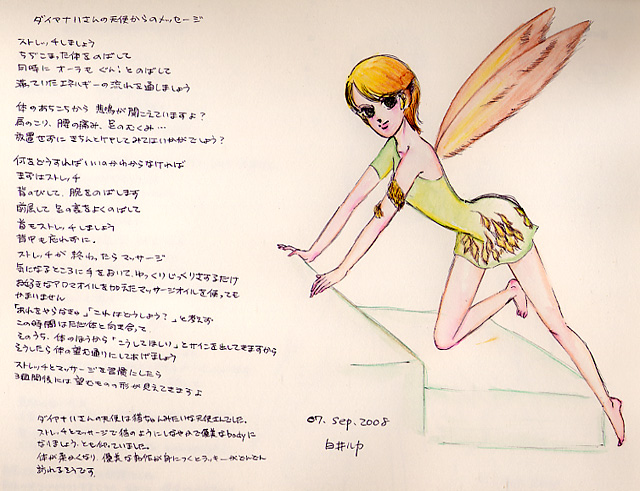 ダイヤナ11さんの天使からのメッセージ
ストレッチしましょう
ちぢこまった体をのばして
同時に オーラも ぐん!とのばして
滞っていたエネルギーの流れを通しましょう
体のあちこちから 悲鳴が聞こえていますよ?
肩のこり、腰の痛み、足のむくみ…
放置せずに きちんとケアしてみてはいかがでしょう?
何をどうすればいいのかわからなければ
まずはストレッチ
背のびして、腕をのばします
前屈して 足の裏をよくのばして
首もストレッチしましょう
背中も忘れずに。
ストレッチが 終わったら マッサージ
気になるところに手をおいて、ゆっくりじっくりさするだけ
お好きなアロマオイルを加えたマッサージオイルを使っても
かまいません
「あれをやらなきゃ」「これはどうしよう?」と考えず
この時間はただ体と向き合って、
そのうち、体のほうから「こうしてほしい」とサインを出してきますから
そうしたら体の望む通りにしてあげましょう
ストレッチとマッサージを習慣にしたら
3週間後には望むものの形が見えてきますよ
ダイヤナ11さんの天使は猫ちゃんみたいな天使さんでした。
ストレッチとマッサージで猫のようにしなやかで優美なbodyに
なりましょう、とも伝っていました。
体が柔かくなり、優美な動作が身につくとラッキーがどんどん
訪れるそうです。
07. Sep. 2008
白井ルカ